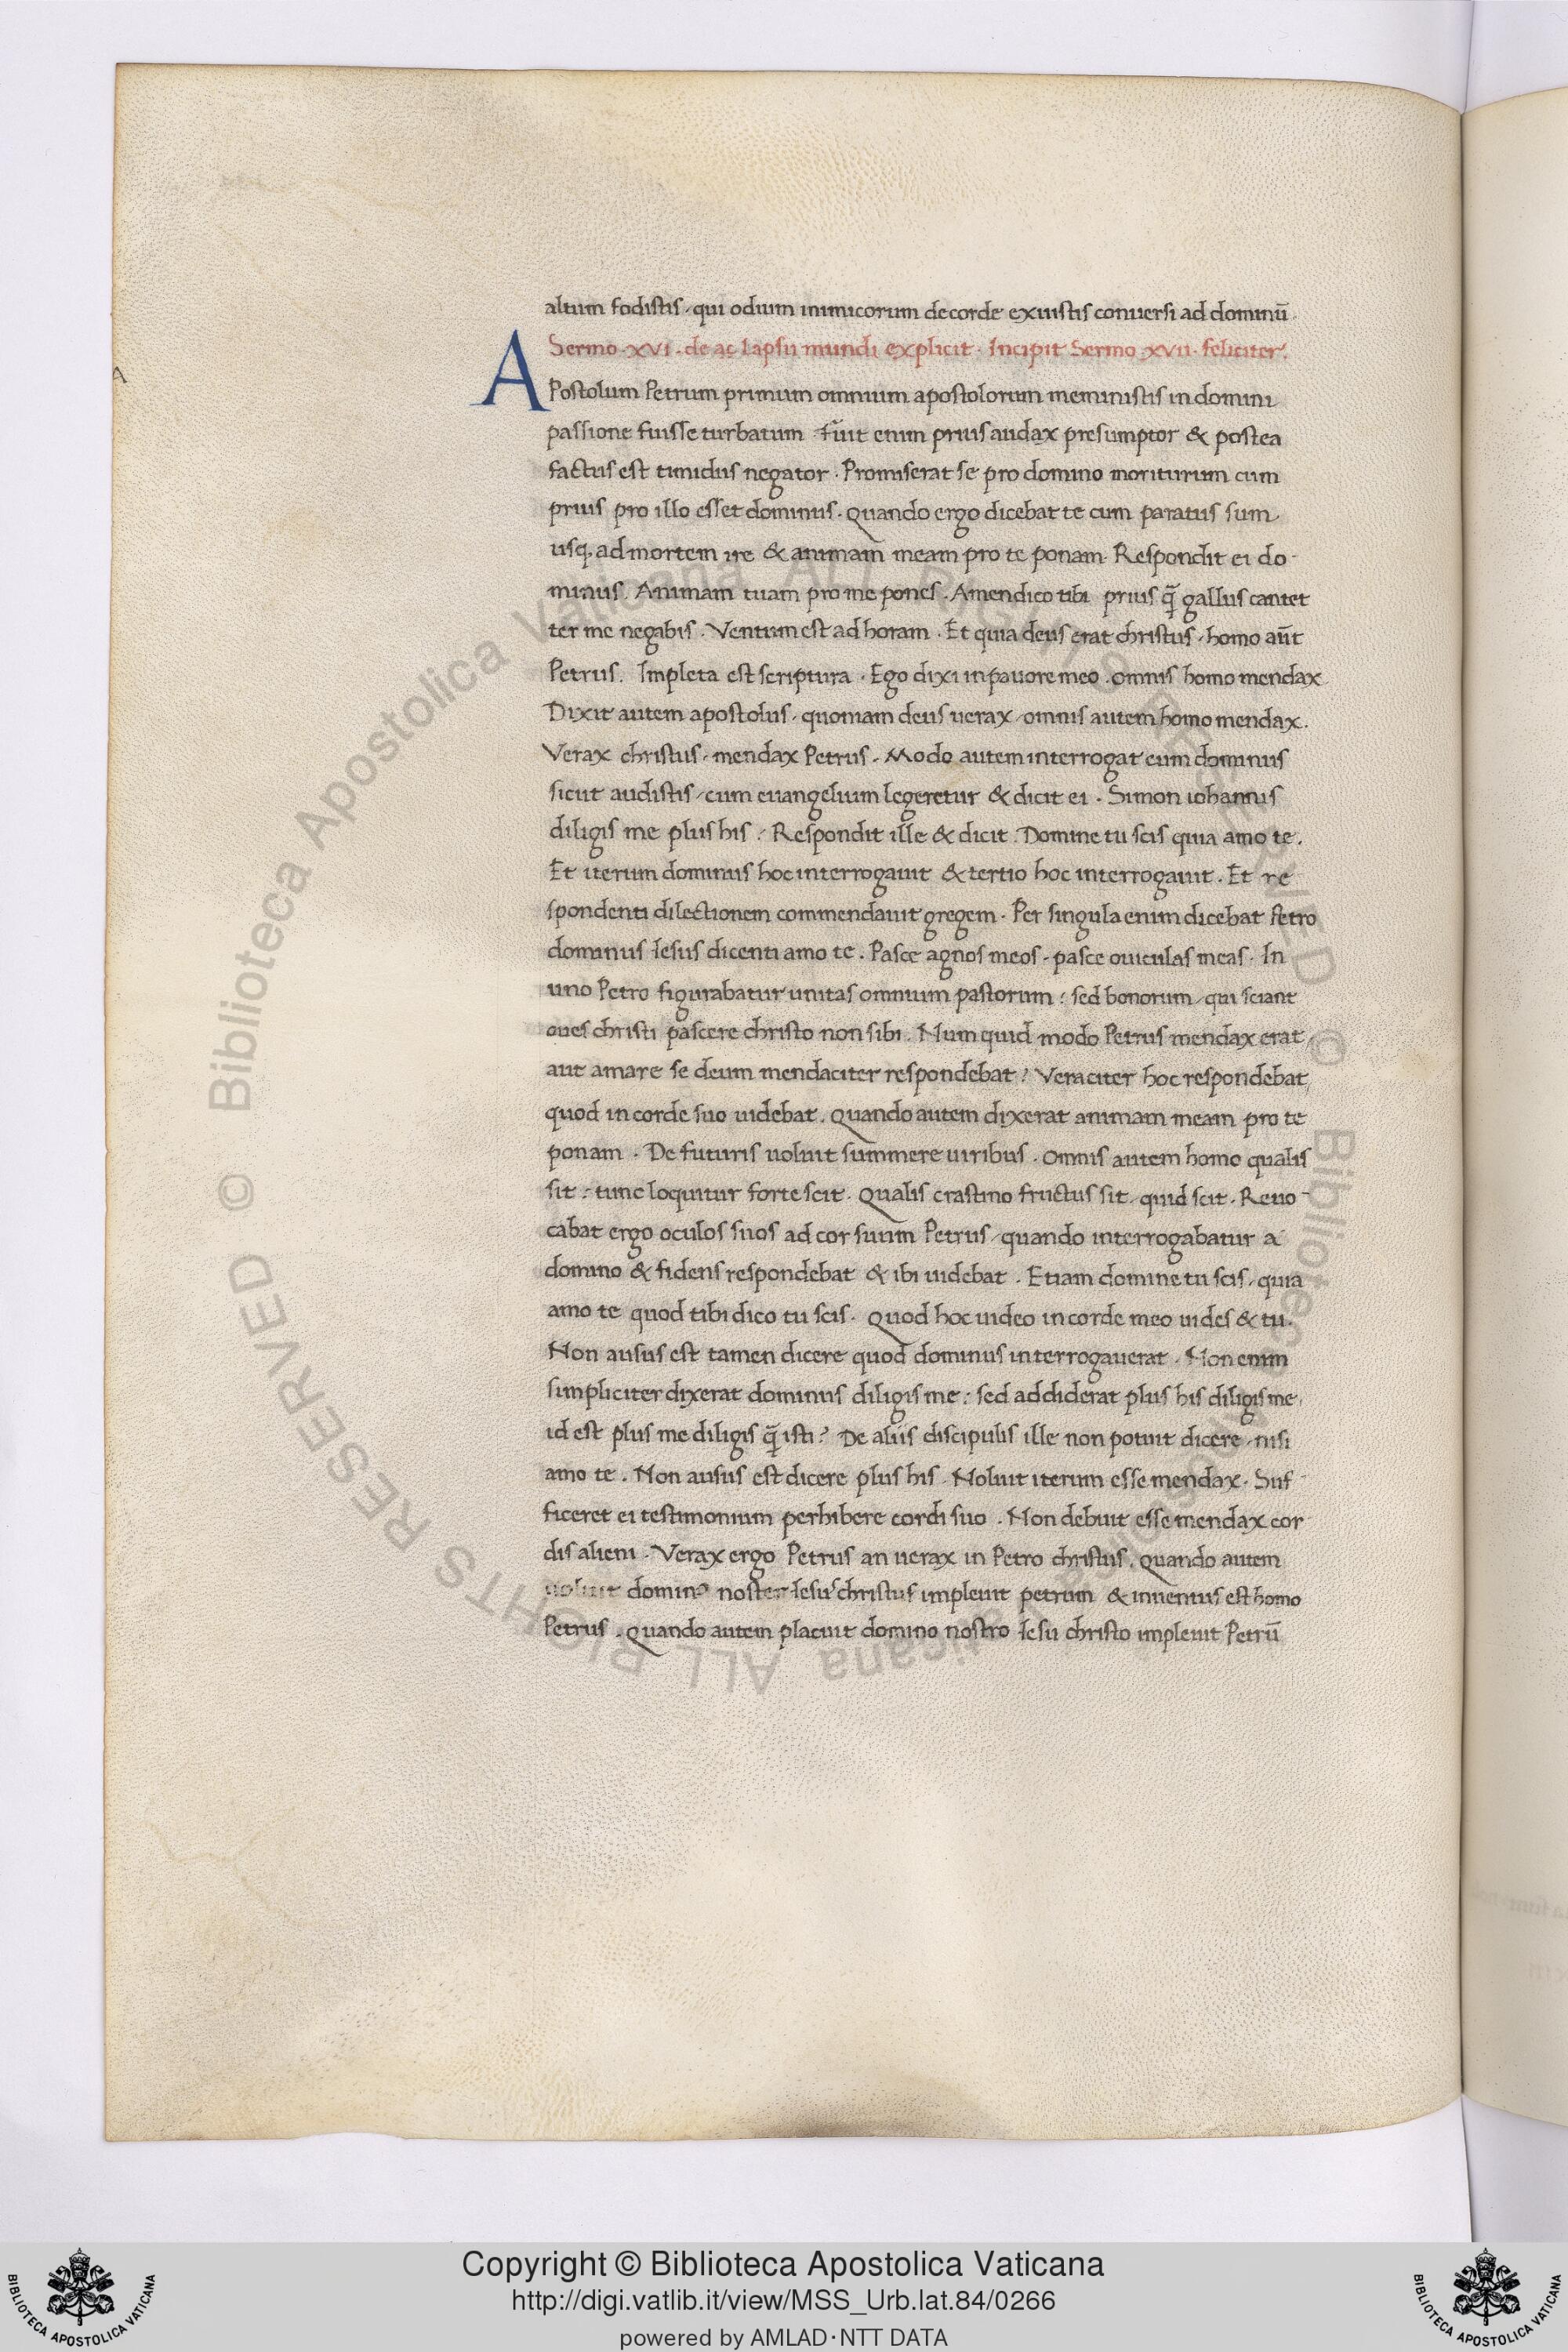 altum fodistis, qui odium inimicorum de corde exuistis conuersi ad dominū.
Sermo .XVI. de ac lapsu mundi explicit. Incipit Sermo .XVII. feliciter.
APostolum Petrum primum omnium apostolorum meministis in domini
passione fuisse turbatum. fuit enim prius audax presumptor & postea
factus est timidus negator. Promiserat se pro domino moriturum cum
prius pro illo esset dominus. Quando ergo dicebat te cum paratus sum
usq. ad mortem ire & animam meam pro te ponam. Respondit ei do-
minus. Animam tuam pro me pones. Amen dico tibi prius q̄ gallus cantet
ter me negabis. Ventum est ad horam. Et quia deus erat christus, homo aūt
Petrus. Impleta est scriptura. Ego dixi in pauore meo. omnis homo mendax
Dixit autem apostolus, quoniam deus uerax, omnis autem homo mendax.
Verax christus, mendax Petrus. Modo autem interrogat eum dominus
sicut audistis, cum euangelium legeretur & dicit ei. Simon iohannis
diligis me plus his? Respondit ille & dicit. Domine tu scis quia amo te.
Et iterum dominus hoc interrogauit & tertio hoc interrogauit. Et re
spondenti dilectionem commendauit gregem. Per singula enim dicebat Petro
dominus Iesus dicenti amo te. Pasce agnos meos. pasce ouiculas meas. In
uno Petro figurabatur unitas omnium pastorum: sed bonorum, qui sciant
oues christi pascere christo non sibi. Num quid modo Petrus mendax erat,
aut amare se deum mendaciter respondebat? Veraciter hoc respondebat,
quod in corde suo uidebat. Quando autem dixerat animam meam pro te
ponam. De futuris uoluit summere uiribus. Omnis autem homo qualis
sit: tunc loquitur forte scit. Qualis crastino fructus sit, quid scit. Reuo-
cabat ergo oculos suos ad cor suum Petrus, quando interrogabatur a
domino & fidens respondebat & ibi uidebat. Etiam domine tu scis, quia
amo te quod tibi dico tu scis. Quod hoc uideo in corde meo uides & tu.
Non ausus est tamen dicere quod dominus interrogauerat. Non enim
simpliciter dixerat dominus diligis me: sed addiderat plus his diligis me,
id est plus me diligis q̄ isti? De aliis discipulis ille non potuit dicere, nisi
amo te. Non ausus est dicere plus his. Noluit iterum esse mendax. Suf-
ficeret ei testimonium perhibere cordi suo. Non debuit esse mendax cor
dis alieni. Verax ergo Petrus an uerax in Petro christus. Quando autem
uoluit domin⁹ noster Iesus christus impleuit petrum & inuentus est homo
Petrus. Quando autem placuit domino nostro Iesu christo impleuit Petrū
A
© Biblioteca Apostolica Vaticana ALL RIGHTS RESERVED © Biblioteca Apostolica Vaticana ALL RIGHTS RESERVED
Copyright © Biblioteca Apostolica Vaticana
http://digi.vatlib.it/view/MSS_Urb.lat.84/0266
powered by AMLAD·NTT DATA
BIBLIOTECA APOSTOLICA VATICANA
BIBLIOTECA APOSTOLICA VATICANA